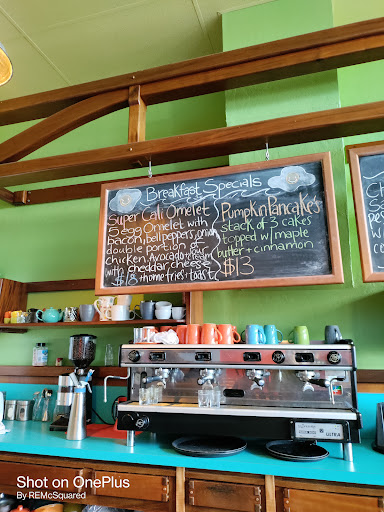 Breakfast Specials
Super Cali Omelet
5 egg Omelet with
bacon, bell peppers, onion
double portion of
chicken, Avocado, sour cream
with cheddar cheese
$18 + home fries + toast
Pumpkin Pancakes
stack of 3 cakes
topped w/ maple
butter + cinnamon
$13
ULTRA
Shot on OnePlus
By REMcSquared